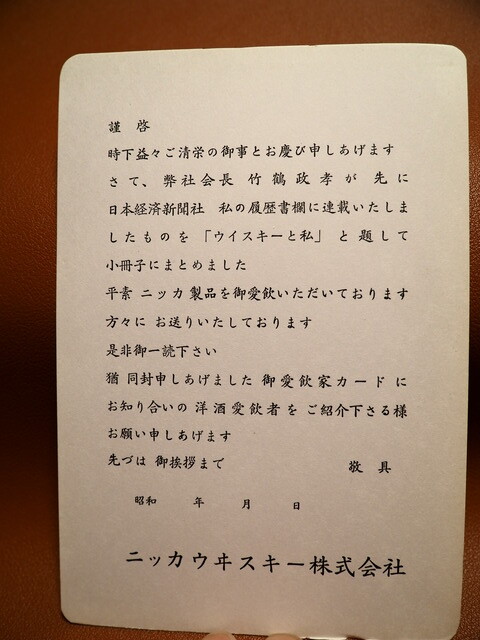 謹啓
時下益々ご清栄の御事とお慶び申しあげます
さて、弊社会長 竹鶴政孝が 先に
日本経済新聞社 私の履歴書欄に連載いたしま
したものを「ウイスキーと私」と題して
小冊子にまとめました
平素 ニッカ製品を御愛飲いただいております
方々に お送りいたしております
是非御一読下さい
猶 同封申しあげました 御愛飲家カードに
お知り合いの 洋酒愛飲者を ご紹介下さる様
お願い申しあげます
先づは 御挨拶まで 敬具
昭和 年 月 日
ニッカウヰスキー株式会社